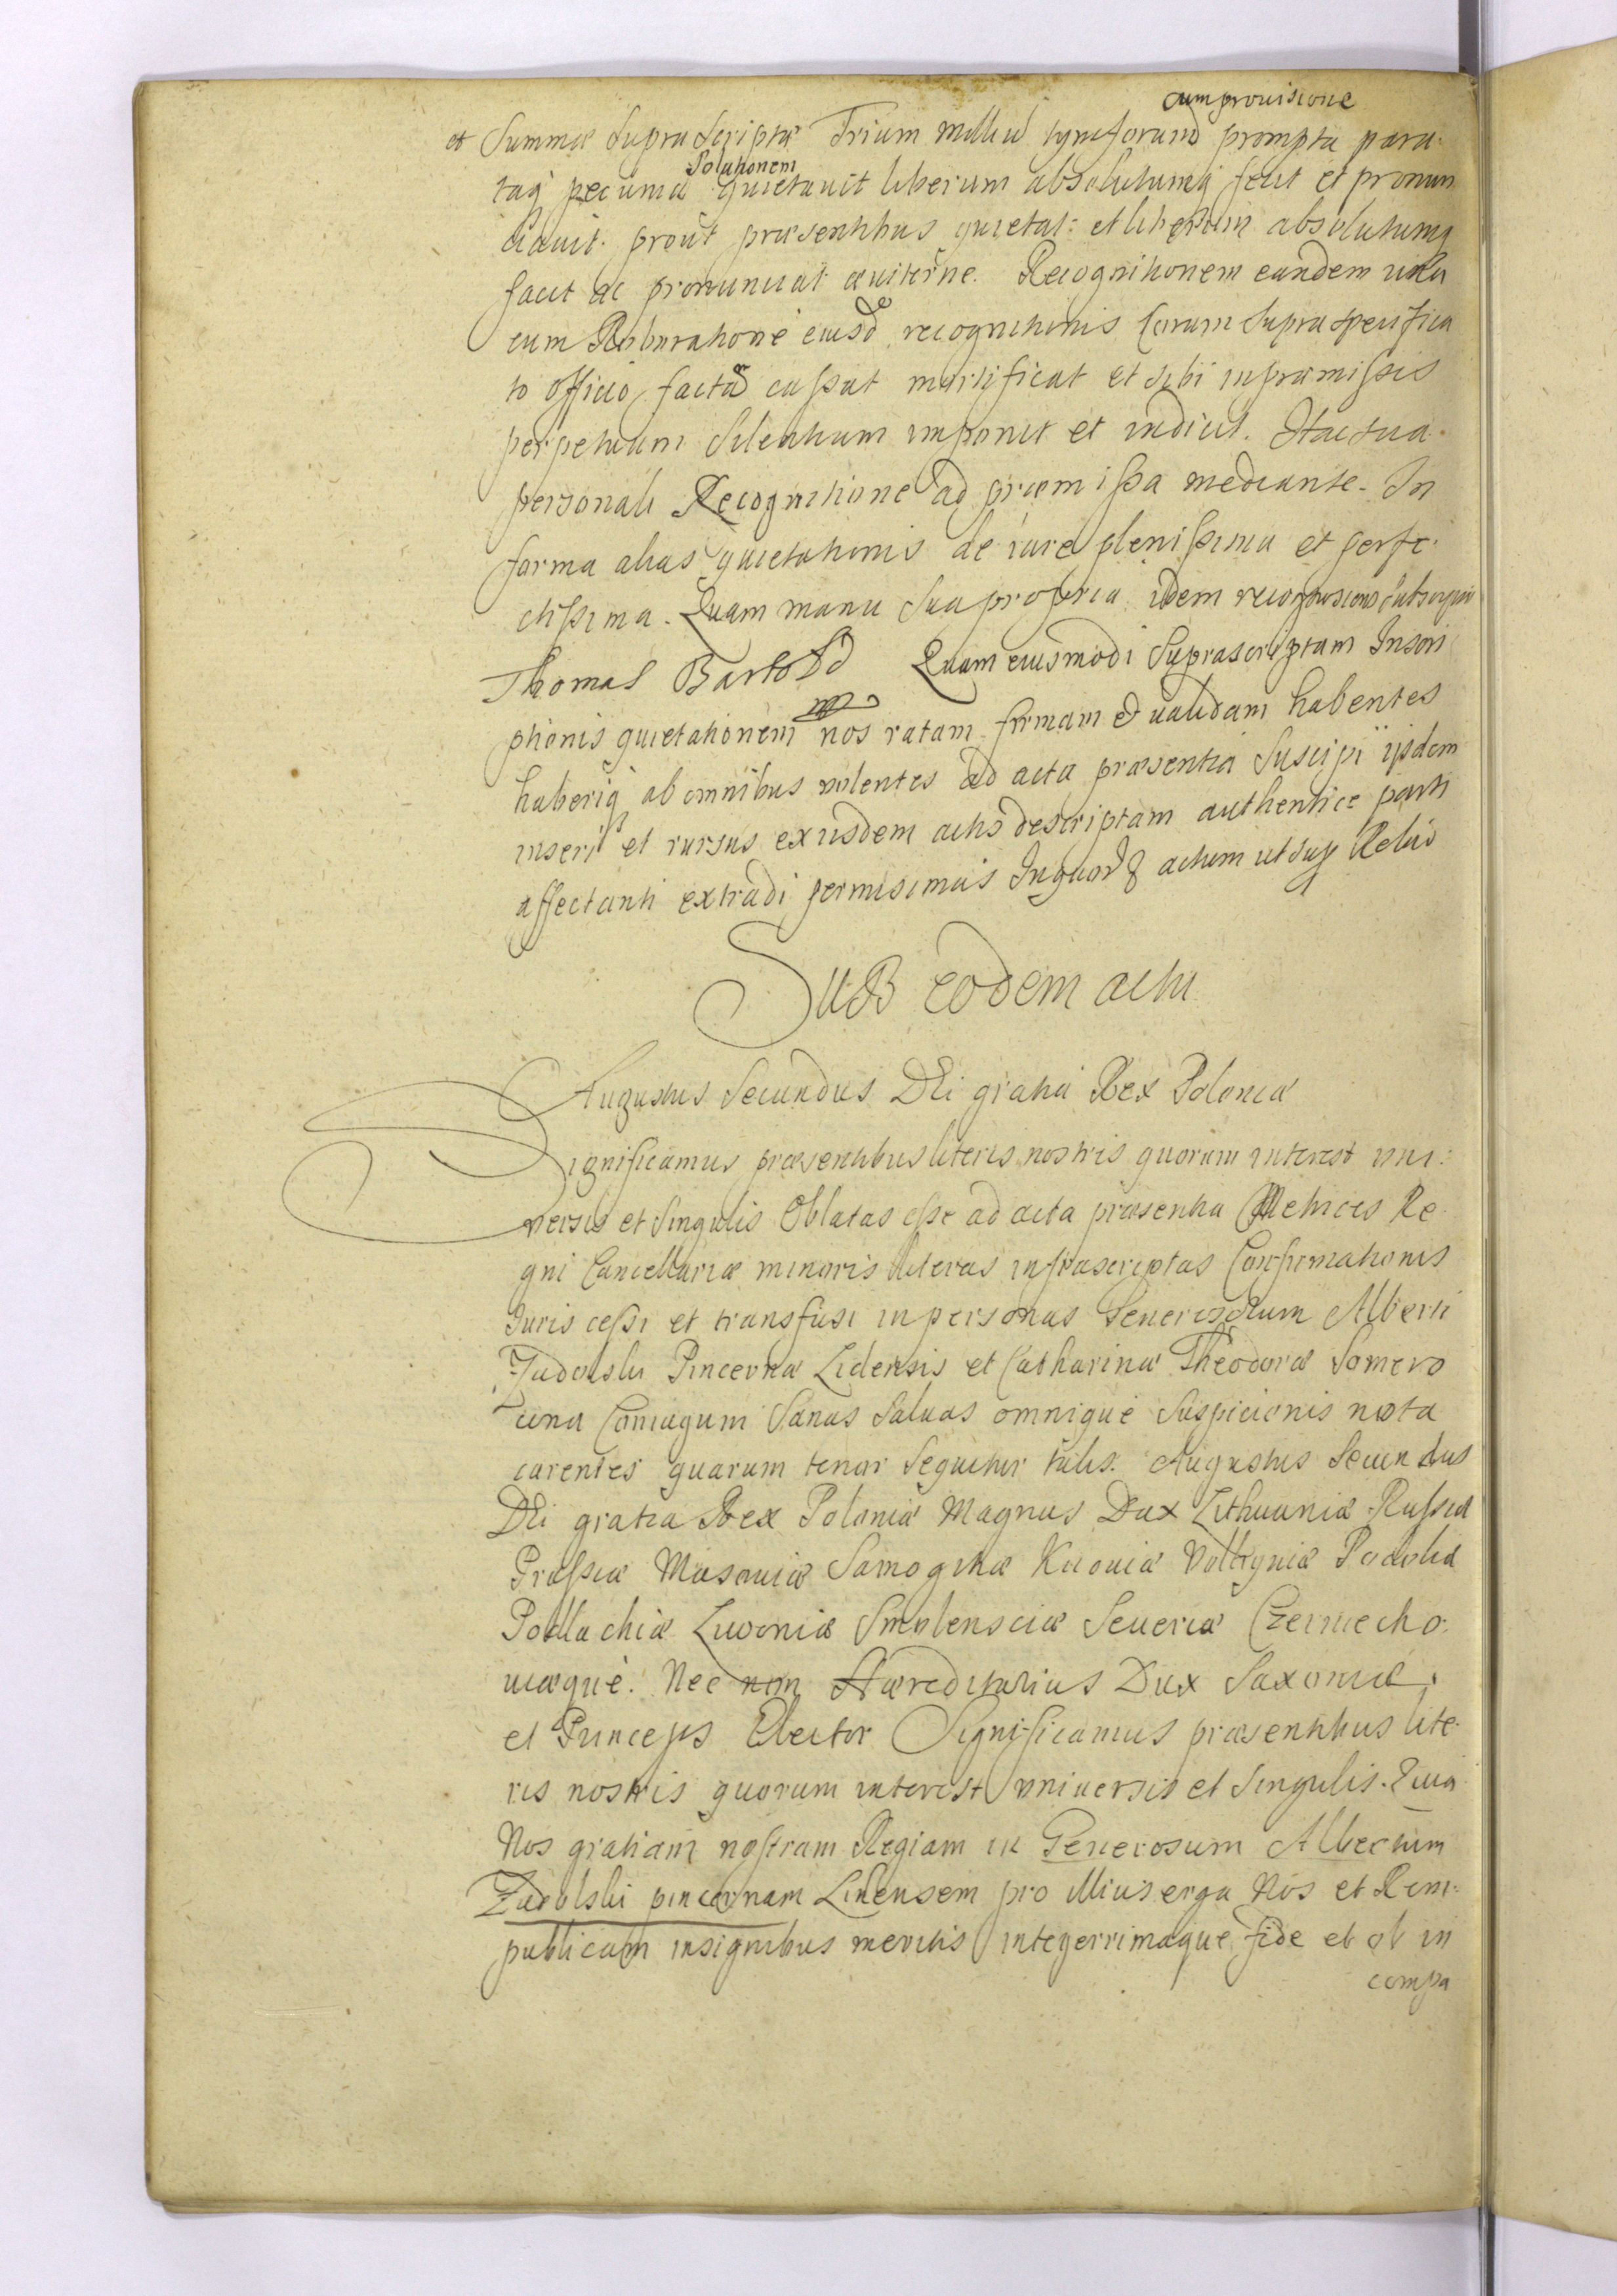 cum provisione
et Summæ Supra Scriptæ Trium milliū tymforum prompta para-
Solutionem
taq pecunia quietavit liberum absolutumq fecit et pronun
ciavit. prout præsentibus quietat: et liberum absolutumq
facit ac pronunciat æviterne. Recognitionem eandem una
cum Roboratione eiusd recognitionis Coram Supra specifica
to officio facta cassat mortificat et sibi in præmissis
perpetuum Silentium imponit et indicit. Hac sua
personali Recognitione ad præmissa mediante. In
forma alias quietationis de iure plenissima et perfe-
ctissima. Quam manu Sua propria idem recognoscens subscripsit
Thomas Bartold Quam eiusmodi Suprascriptam Inscri
ptionis quietationem nos ratam firmam et validam habentes
haberiq ab omnibus volentes ad acta præsentia Suscipi ijsdem
inseri et rursus ex iisdem actis descriptam authentice parti
affectanti extradi permisimus In quor actum ut sup Relō
SUB eodem actu
Augustus Secundus Dei gratia Rex Poloniæ
Significamus præsentibus literis nostris quorum interest uni-
versis et Singulis Oblatas esse ad acta præsentia Metrices Re-
gni Cancellariæ minoris literas infrascriptas Confirmationis
Juris cessi et transfusi in personas Generosorum Alberti
Zudolski Pincernæ Lidensis et Catharinæ Theodoræ Somero
Conjugum Sanas Salvas omnique Suspicionis nota
carentes quarum tenor Sequitur talis. Augustus Secundus
Dei gratia Rex Poloniæ Magnus Dux Lithuaniæ Russiæ
Prussiæ Masoviæ Samogitiæ Kiioviæ Volhyniæ Podoliæ
Podlachiæ Livoniæ Smolensciæ Severiæ Czerniecho-
viæque. Nec non Hæreditarius Dux Saxoniæ.
et Princeps Elector Significamus præsentibus lite-
ris nostris quorum interest universis et Singulis. Quia
Nos gratiam nostram Regiam in Generosum Albertum
Zudolski pincernam Lidensem pro illius erga Nos et Rem-
publicam insignibus meritis integerrimaque fide et ob in
compa